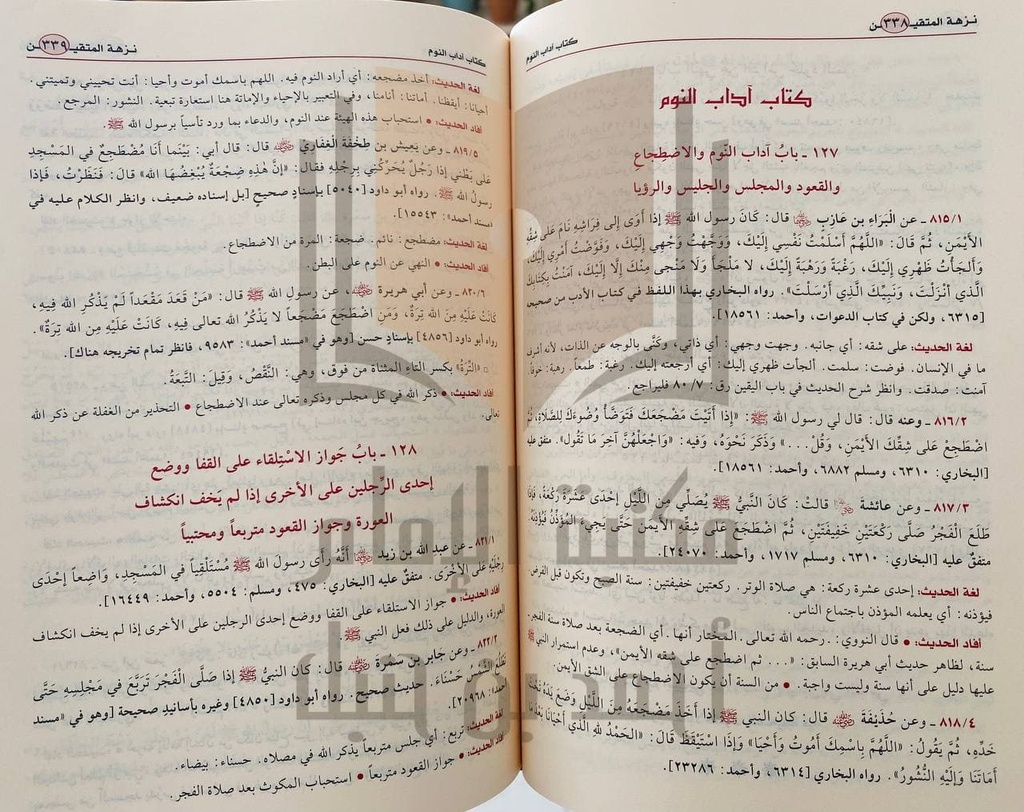 نزهة المتقيـ ٣٣٨ـن
كتاب آداب النوم
كتاب آداب النوم
١٢٧ ـ بابُ آداب النَّوم والاضطِجاعِ
والقعود والمجلس والجليس والرؤيا
٨١٥/١ ـ عن الْبَراءِ بن عَازِبٍ ﵁ قال: كَانَ رسول الله ﷺ إذا أَوَى إلى فِرَاشِهِ نَامَ عَلى شِقِّهِ
الأَيْمَنِ، ثُمَّ قَالَ: «اللَّهُمَّ أَسْلَمْتُ نَفْسِي إلَيْكَ، وَوَجَّهْتُ وَجْهِي إلَيْكَ، وَفَوَّضْتُ أَمْرِي إلَيْكَ،
وَأَلجَأْتُ ظَهْرِي إلَيْكَ، رَغْبَةً وَرَهْبَةً إلَيْكَ، لا مَلْجَأَ وَلَا مَنْجى مِنْكَ إلَّا إلَيْكَ، آمَنْتُ بِكِتَابِكَ
الَّذي أنْزَلْتَ، وَنَبِيِّكَ الَّذِي أَرْسَلْتَ». رواه البخاري بهذا اللفظ في كتاب الأدب من صحيحه
[٦٣١٥، ولكن في كتاب الدعوات، وأحمد: ١٨٥٦١].
لغة الحديث: على شقه: أي جانبه. وجهت وجهي: أي ذاتي، وكنَّى بالوجه عن الذات، لأنه أشرف
ما في الإنسان. فوضت: سلمت. ألجأت ظهري إليك: أي أرجعته إليك. رغبة: طمعاً. رهبة: خوفاً.
آمنت: صدقت. وانظر شرح الحديث في باب اليقين رق: ٨٠/٧ فليراجع.
٨١٦/٢ ـ وعنه قال: قال لي رسول الله ﷺ: «إذَا أَتَيْتَ مَضْجَعَكَ فَتَوَضَّأْ وُضُوءَكَ لِلصَّلاةِ، ثُمَّ
اضْطَجِعْ عَلى شِقِّكَ الأيْمَنِ، وَقُلْ...» وَذَكَرَ نَحْوَهُ، وَفيه: «وَاجْعَلْهُنَّ آخِرَ مَا تَقُولُ». متفق عليه
[البخاري: ٦٣١٠، ومسلم ٦٨٨٢، وأحمد: ١٨٥٦١].
٨١٧/٣ ـ وعن عائشةَ ﵂ قالتْ: كَانَ النَّبيُّ ﷺ يُصَلِّي مِن اللَّيْلِ إحْدَى عَشْرَةَ رَكْعَةً، فَإذَا
طَلَعَ الْفَجْرُ صَلَّى رَكْعَتَيْنِ خَفِيفَتَيْنِ، ثُمَّ اضْطَجَعَ عَلى شِقِّهِ الأَيْمَنِ حَتَّى يَجِيءَ المُؤَذِّنُ فَيُؤْذِنَهُ.
متفق عليه [البخاري: ٦٣١٠، ومسلم ١٧١٧، وأحمد: ٢٤٠٧٠].
لغة الحديث: إحدى عشرة ركعة: هي صلاة الوتر. ركعتين خفيفتين: سنة الصبح وتكون قبل الفرض.
فيؤذنه: أي يعلمه المؤذن باجتماع الناس.
أفاد الحديث: • قال النووي: رحمه الله تعالى. المختار أنها. أي الضجعة بعد صلاة سنة الفجر.
سنة، لظاهر حديث أبي هريرة السابق: «... ثم اضطجع على شقه الأيمن»، وعدم استمرار النبي ﷺ
عليها دليل على أنها سنة وليست واجبة. • من السنة أن يكون الاضطجاع على الشق الأيمن.
٨١٨/٤ ـ وعن حُذَيفَةَ ﵁ قال: كان النبي ﷺ إذا أَخَذَ مَضْجَعَهُ مِنَ اللَّيْلِ وَضَعَ يَدَهُ تَحْتَ
خَدِّهِ، ثُمَّ يَقُولُ: «اللَّهُمَّ بِاسْمِكَ أَمُوتُ وَأَحْيَا» وَإذَا اسْتَيْقَظَ قَالَ: «الحَمْدُ للهِ الَّذي أَحْيَانَا بَعْدَ مَا
أَمَاتَنَا وَإلَيْهِ النُّشُورُ». رواه البخاري [٦٣١٤، وأحمد: ٢٣٢٨٦].
كتاب آداب النوم
نزهة المتقيـ ٣٣٩ـن
لغة الحديث: أخذ مضجعه: أي أراد النوم فيه. اللهم باسمك أموت وأحيا: أنت تحييني وتميتني.
أحيانا: أيقظنا. أماتنا: أنامنا، وفي التعبير بالإحياء والإماتة هنا استعارة تبعية. النشور: المرجع.
أفاد الحديث: • استحباب هذه الهيئة عند النوم، والدعاء بما ورد تأسياً برسول الله ﷺ.
٨١٩/٥ ـ وعن يَعيش بن طِخْفَةَ الْغِفَارِيِّ ﵁ قال: قال أبي: بَيْنَما أَنَا مُضْطَجِعٌ في المَسْجِدِ
عَلى بَطْنِي إذَا رَجُلٌ يُحَرِّكُنِي بِرِجْلِهِ فقال: «إنَّ هٰذِهِ ضِجْعَةٌ يُبْغِضُهَا الله» قالَ: فَنَظَرْتُ، فَإذَا
رسولُ الله ﷺ. رواه أبو داود [٥٠٤٠] بإسنادٍ صحيحٍ [بل إسناده ضعيف، وانظر الكلام عليه في
«مسند أحمد»: ١٥٥٤٣].
لغة الحديث: مضطجع: نائم. ضجعة: المرة من الاضطجاع.
أفاد الحديث: • النهي عن النوم على البطن.
٨٢٠/٦ ـ وعن أبي هريرة ﵁، عن رسولِ الله ﷺ قال: «مَنْ قَعَدَ مَقْعَداً لَمْ يَذْكُرِ الله فِيهِ،
كَانَتْ عَلَيْهِ مِنَ الله تِرَةٌ، وَمَنِ اضْطَجَعَ مَضْجَعاً لا يَذْكُرُ الله تعالى فِيهِ، كَانَتْ عَلَيْهِ مِنَ الله تِرَةٌ».
رواه أبو داود [٤٨٥٦] بإسنادٍ حسن [وهو في «مسند أحمد»: ٩٥٨٣، فانظر تمام تخريجه هناك].
«التِّرَةُ» بكسرِ التاءِ المثناة من فوق، وهي: النَّقْصُ، وَقِيلَ: التَّبِعَةُ.
أفاد الحديث: • ذكر الله في كل مجلس وذكره تعالى عند الاضطجاع • التحذير من الغفلة عن ذكر الله
تعالى.
١٢٨ ـ بابُ جَواز الاسْتِلقاء على القفا ووضع
إحدى الرِّجلين على الأخرى إذا لم يَخف انكشاف
العورة وجواز القعود متربعاً ومحتبياً
٨٢١/١ ـ عن عبدِ الله بن زيد ﵁ أَنَّهُ رأى رسولَ الله ﷺ مُسْتَلْقِياً في المَسْجِدِ، وَاضِعاً إحْدَى
رِجْلَيْهِ عَلى الأُخْرَى. متفقٌ عليه [البخاري: ٤٧٥، ومسلم: ٥٥٠٤، وأحمد: ١٦٤٤٩].
أفاد الحديث: • جواز الاستلقاء على القفا ووضع إحدى الرجلين على الأخرى إذا لم يخف انكشاف
العورة، والدليل على ذلك فعل النبي ﷺ.
٨٢٢/٢ ـ وعن جابر بن سَمُرة ﵁ قال: كَانَ النبيُّ ﷺ إذَا صَلَّى الْفَجْرَ تَرَبَّعَ في مَجْلِسِهِ حَتَّى
تَطْلُعَ الشَّمْسُ حَسْنَاءَ. حديث صحيح. رواه أبو داود [٤٨٥٠] وغيره بأسانيدَ صحيحة [وهو في «مسند
أحمد»: ٢٠٩٦٨].
لغة الحديث: تربع: أي جلس متربعاً يذكر الله في مصلاه. حسناء: بيضاء.
أفاد الحديث: • جواز القعود متربعاً • استحباب المكوث بعد صلاة الفجر.
مكتبة الإمام
أحمد بن حنبل